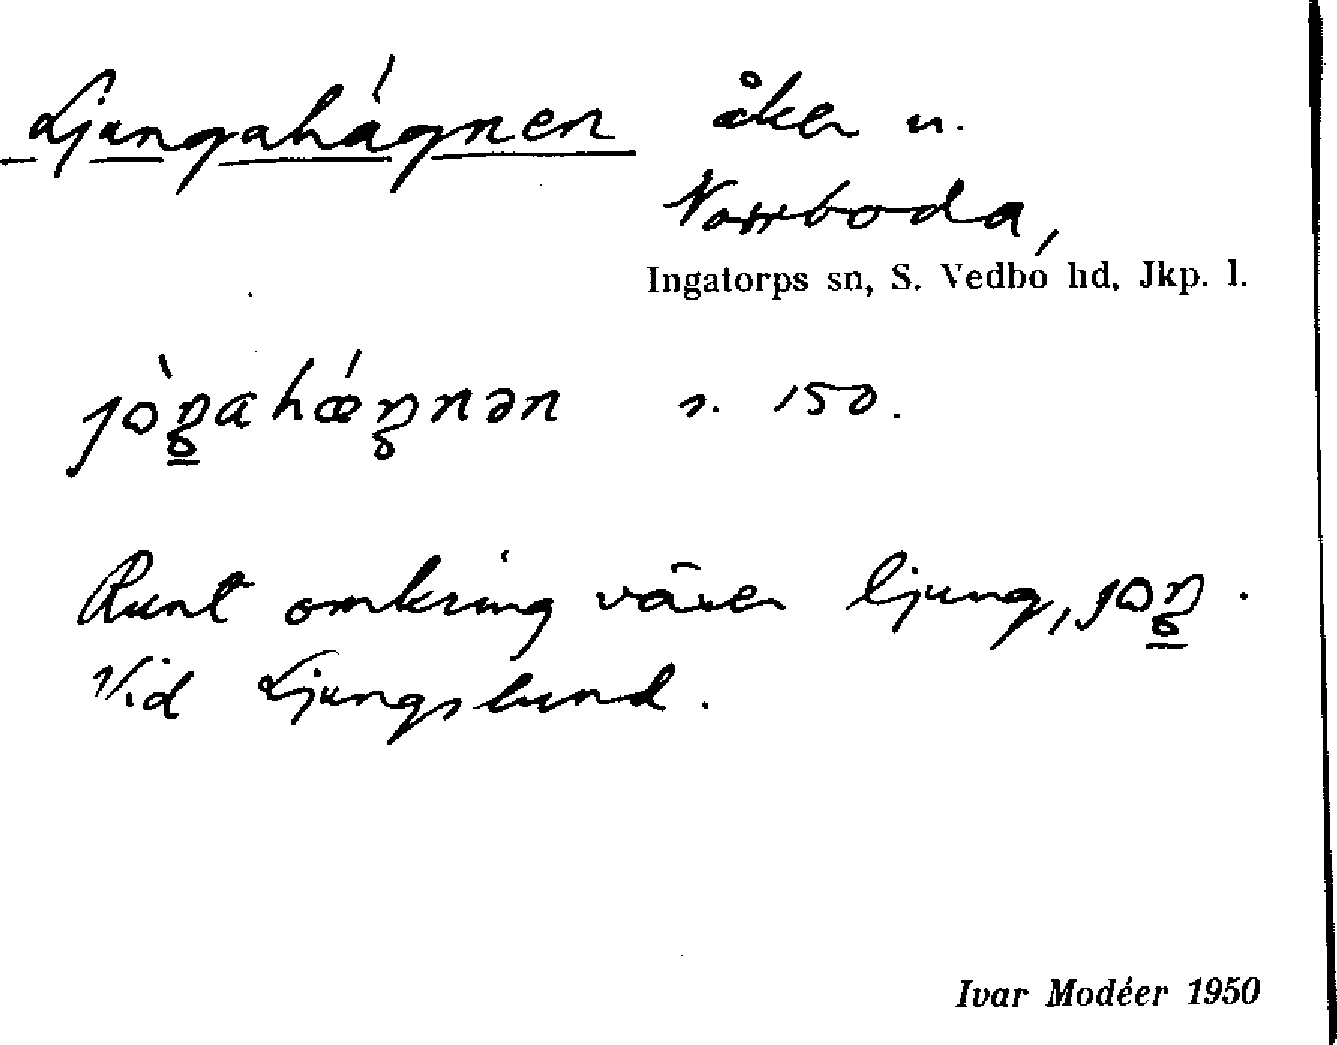 Ljungahágnen åker u.
Norrboda,
Ingatorps sn, S. Vedbo hd, Jkp. l.
jòŋahǽŋnən s. 150.
Runt omkring växer ljung, joŋ.
Vid Ljungslund.
Ivar Modéer 1950